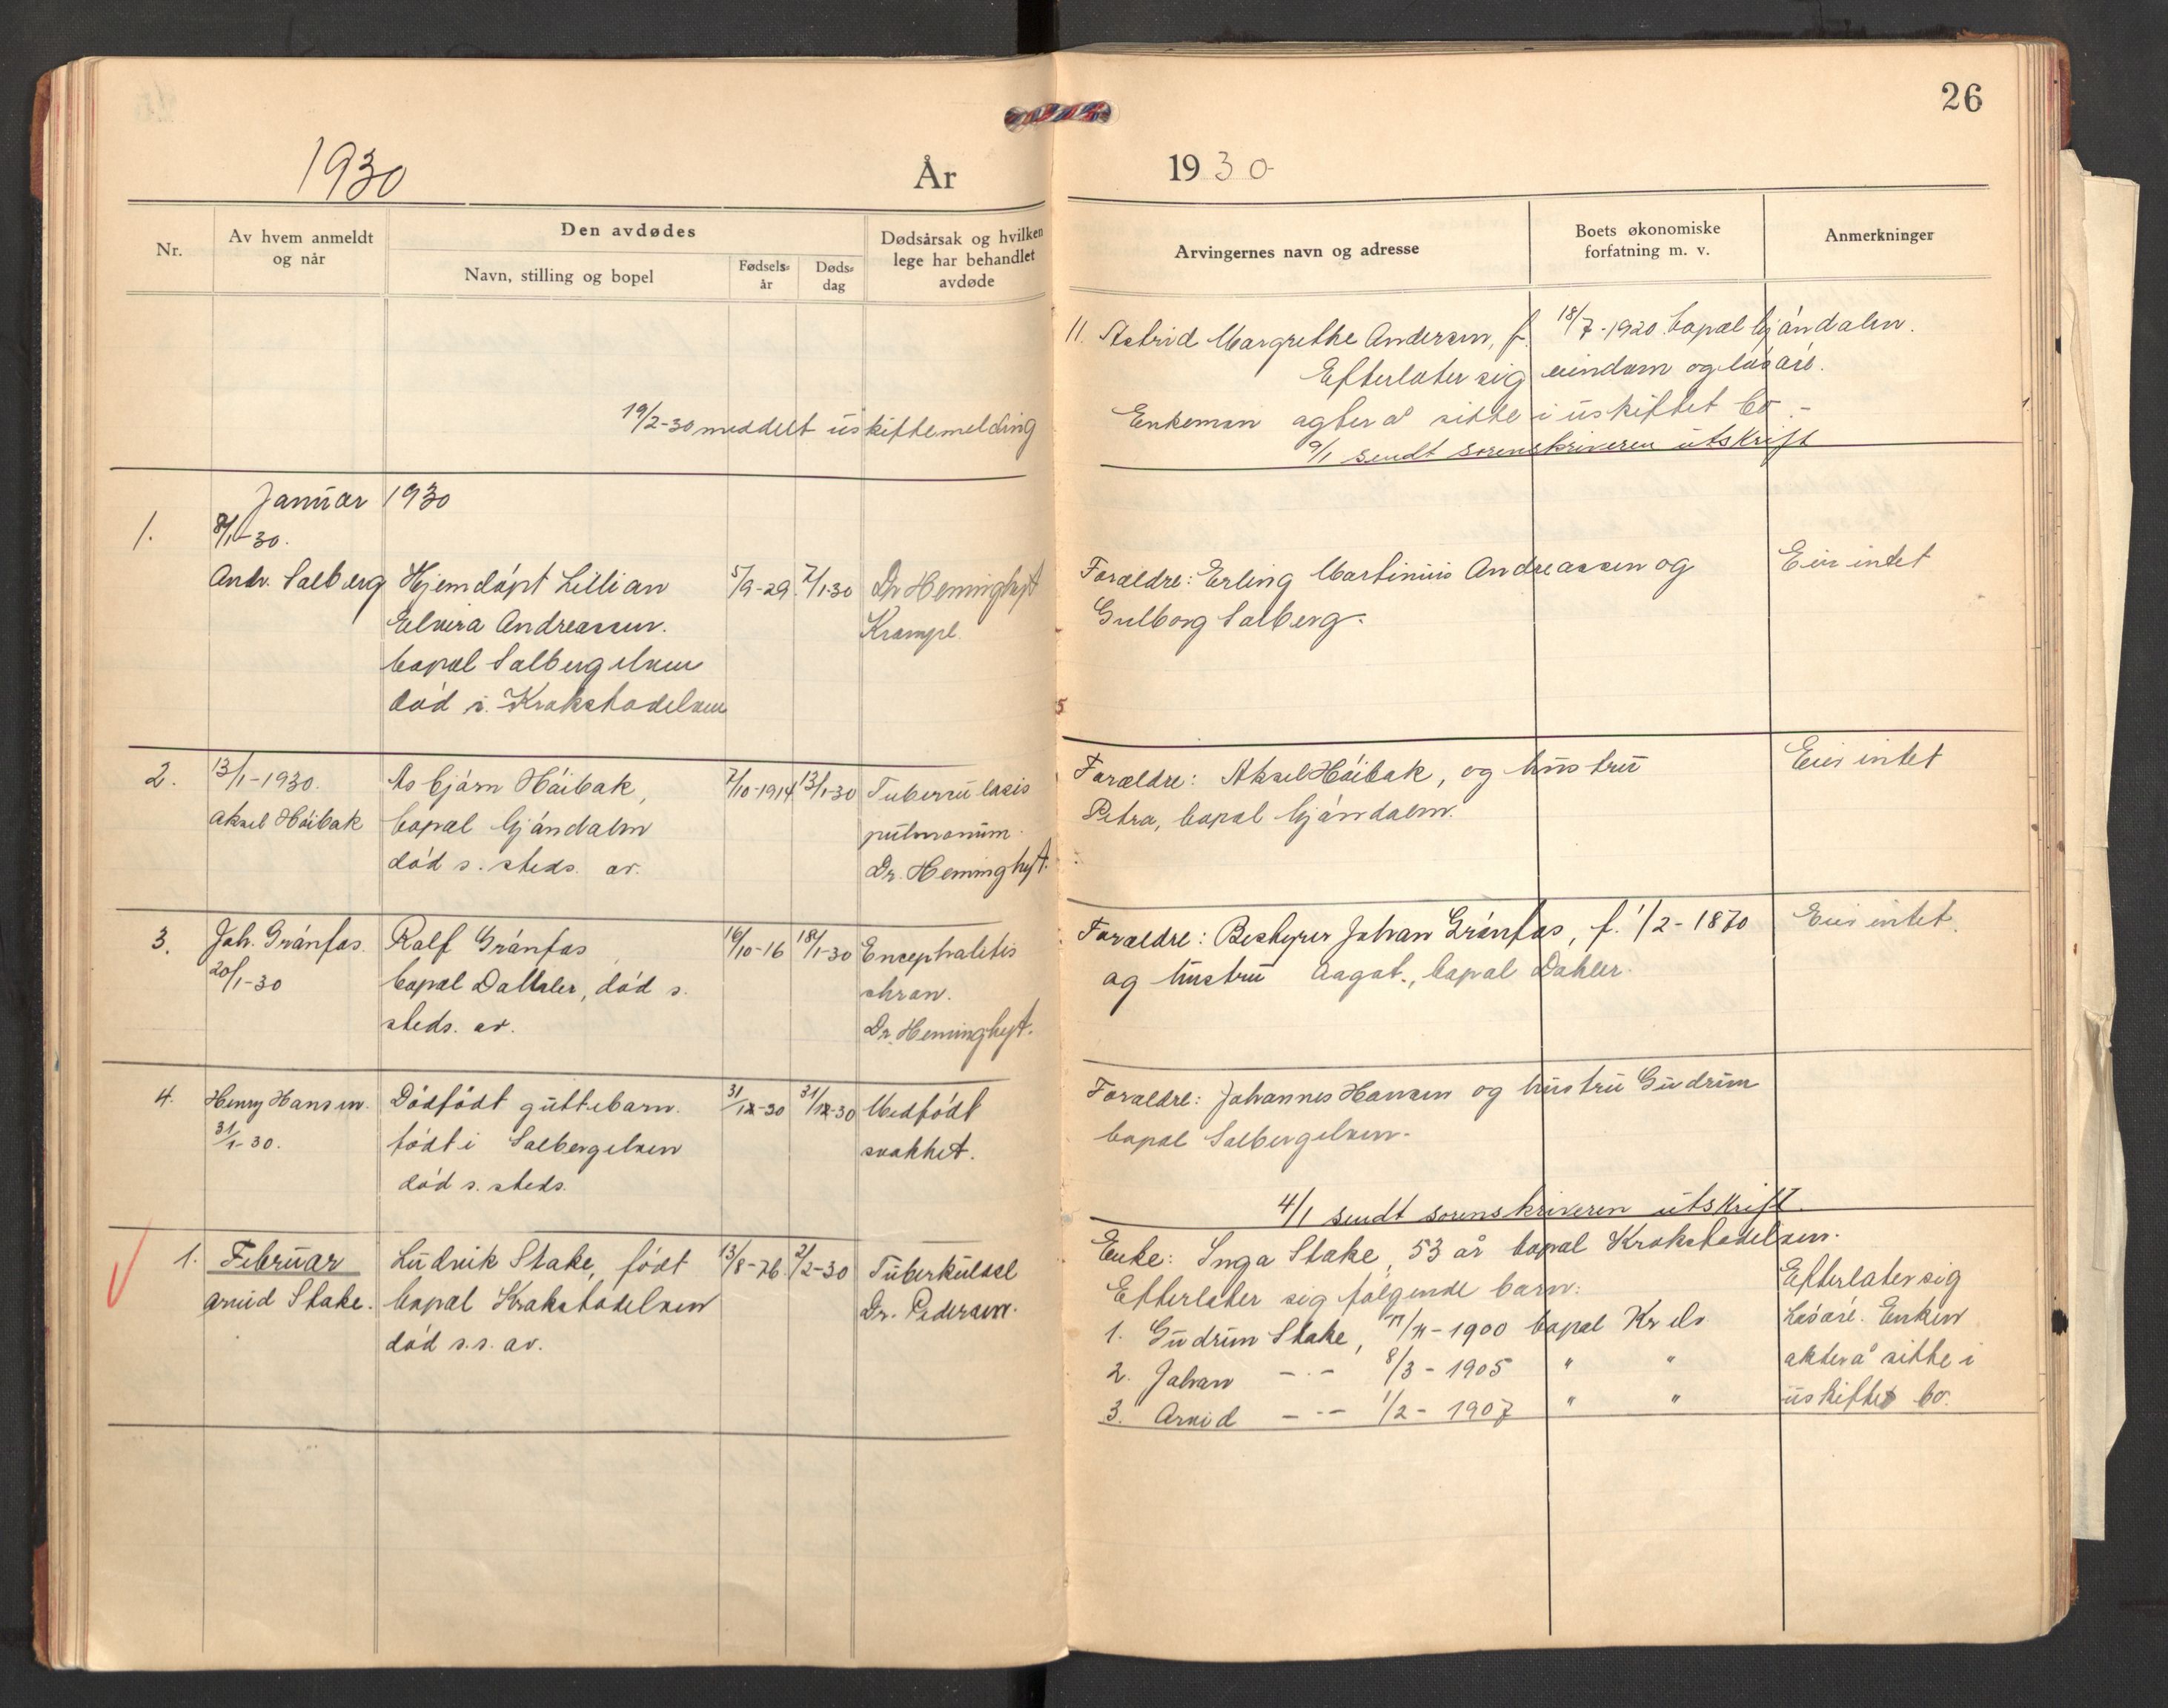 26
1930
År
1930
Nr.
Av hvem anmeldt
og når
Den avdødes
Navn, stilling og bopel
Fødsels-
år
Døds-
dag
Dødsårsak og hvilken
lege har behandlet
avdøde
Arvingernes navn og adresse
Boets økonomiske
forfatning m. v.
Anmerkninger
19/2-30 meddelt uskiftemelding
11. Astrid Margrethe Andersen, f. 18/7-1920 bopæl Mjøndalen.
Efterlater sig eiendom og løsøre.
Enkeman agter å sitte i uskiftet bo.-
9/1 sendt sorenskriveren utskrift
Januar 1930
1.
8/1-30.
Andr. Salberg
Hjemdøpt Lillian
Elvira Andreassen.
bopæl Solbergelven
død i Krokstadelven
5/9-29
7/1-30
Dr Heminghyt
Krampe
Forældre: Erling Martinius Andreassen og
Gulborg Salberg.
Eier intet
2.
13/1-1930.
Aksel Høibak
Asbjørn Høibak,
bopæl Mjøndalen
død s. steds. av.
7/10-1914
13/1-30
Tuberculosis
pulmonum.
Dr. Heminghyt.
Forældre: Aksel Høibak, og hustru
Petra, bopæl Mjøndalen.
Eier intet
3.
Joh. Grønfos.
20/1-30
Ralf Grønfos
bopæl Dahler, død s.
steds. av.
16/10-16
18/1-30
Encephalitis
chron.
Dr. Heminghyt.
Forældre: Bestyrer Johan Grønfos, f. 1/2-1870
og hustru Aagot., bopæl Dahler.
Eier intet.
4.
Henry Hansen.
31/1-30.
Dødfødt guttebarn.
født i Solbergelven
død s. steds.
31/12-30
31/12-30
Medfødt
svakhet.
Forældre: Johannes Hansen og hustru Gudrun
bopæl Solbergelven.
4/1 sendt sorenskriveren utskrift.
1.
Februar
Arvid Stake.
Ludvik Stake, født
bopæl Krokstadelven
død s.s. av.
13/8-76
2/2-30
Tuberkulose
Dr. Pedersen.
Enke: Inga Stake, 53 år bopæl Krokstadelven.
Efterlater sig følgende barn:
1. Gudrun Stake, 11/11-1900 bopæl Kr elv
2. Johan -.- 8/3-1905 " "
3. Arvid -.- 1/2-1907 " "
Efterlater sig
løsøre. Enken
akter å sitte i
uskiftet bo.